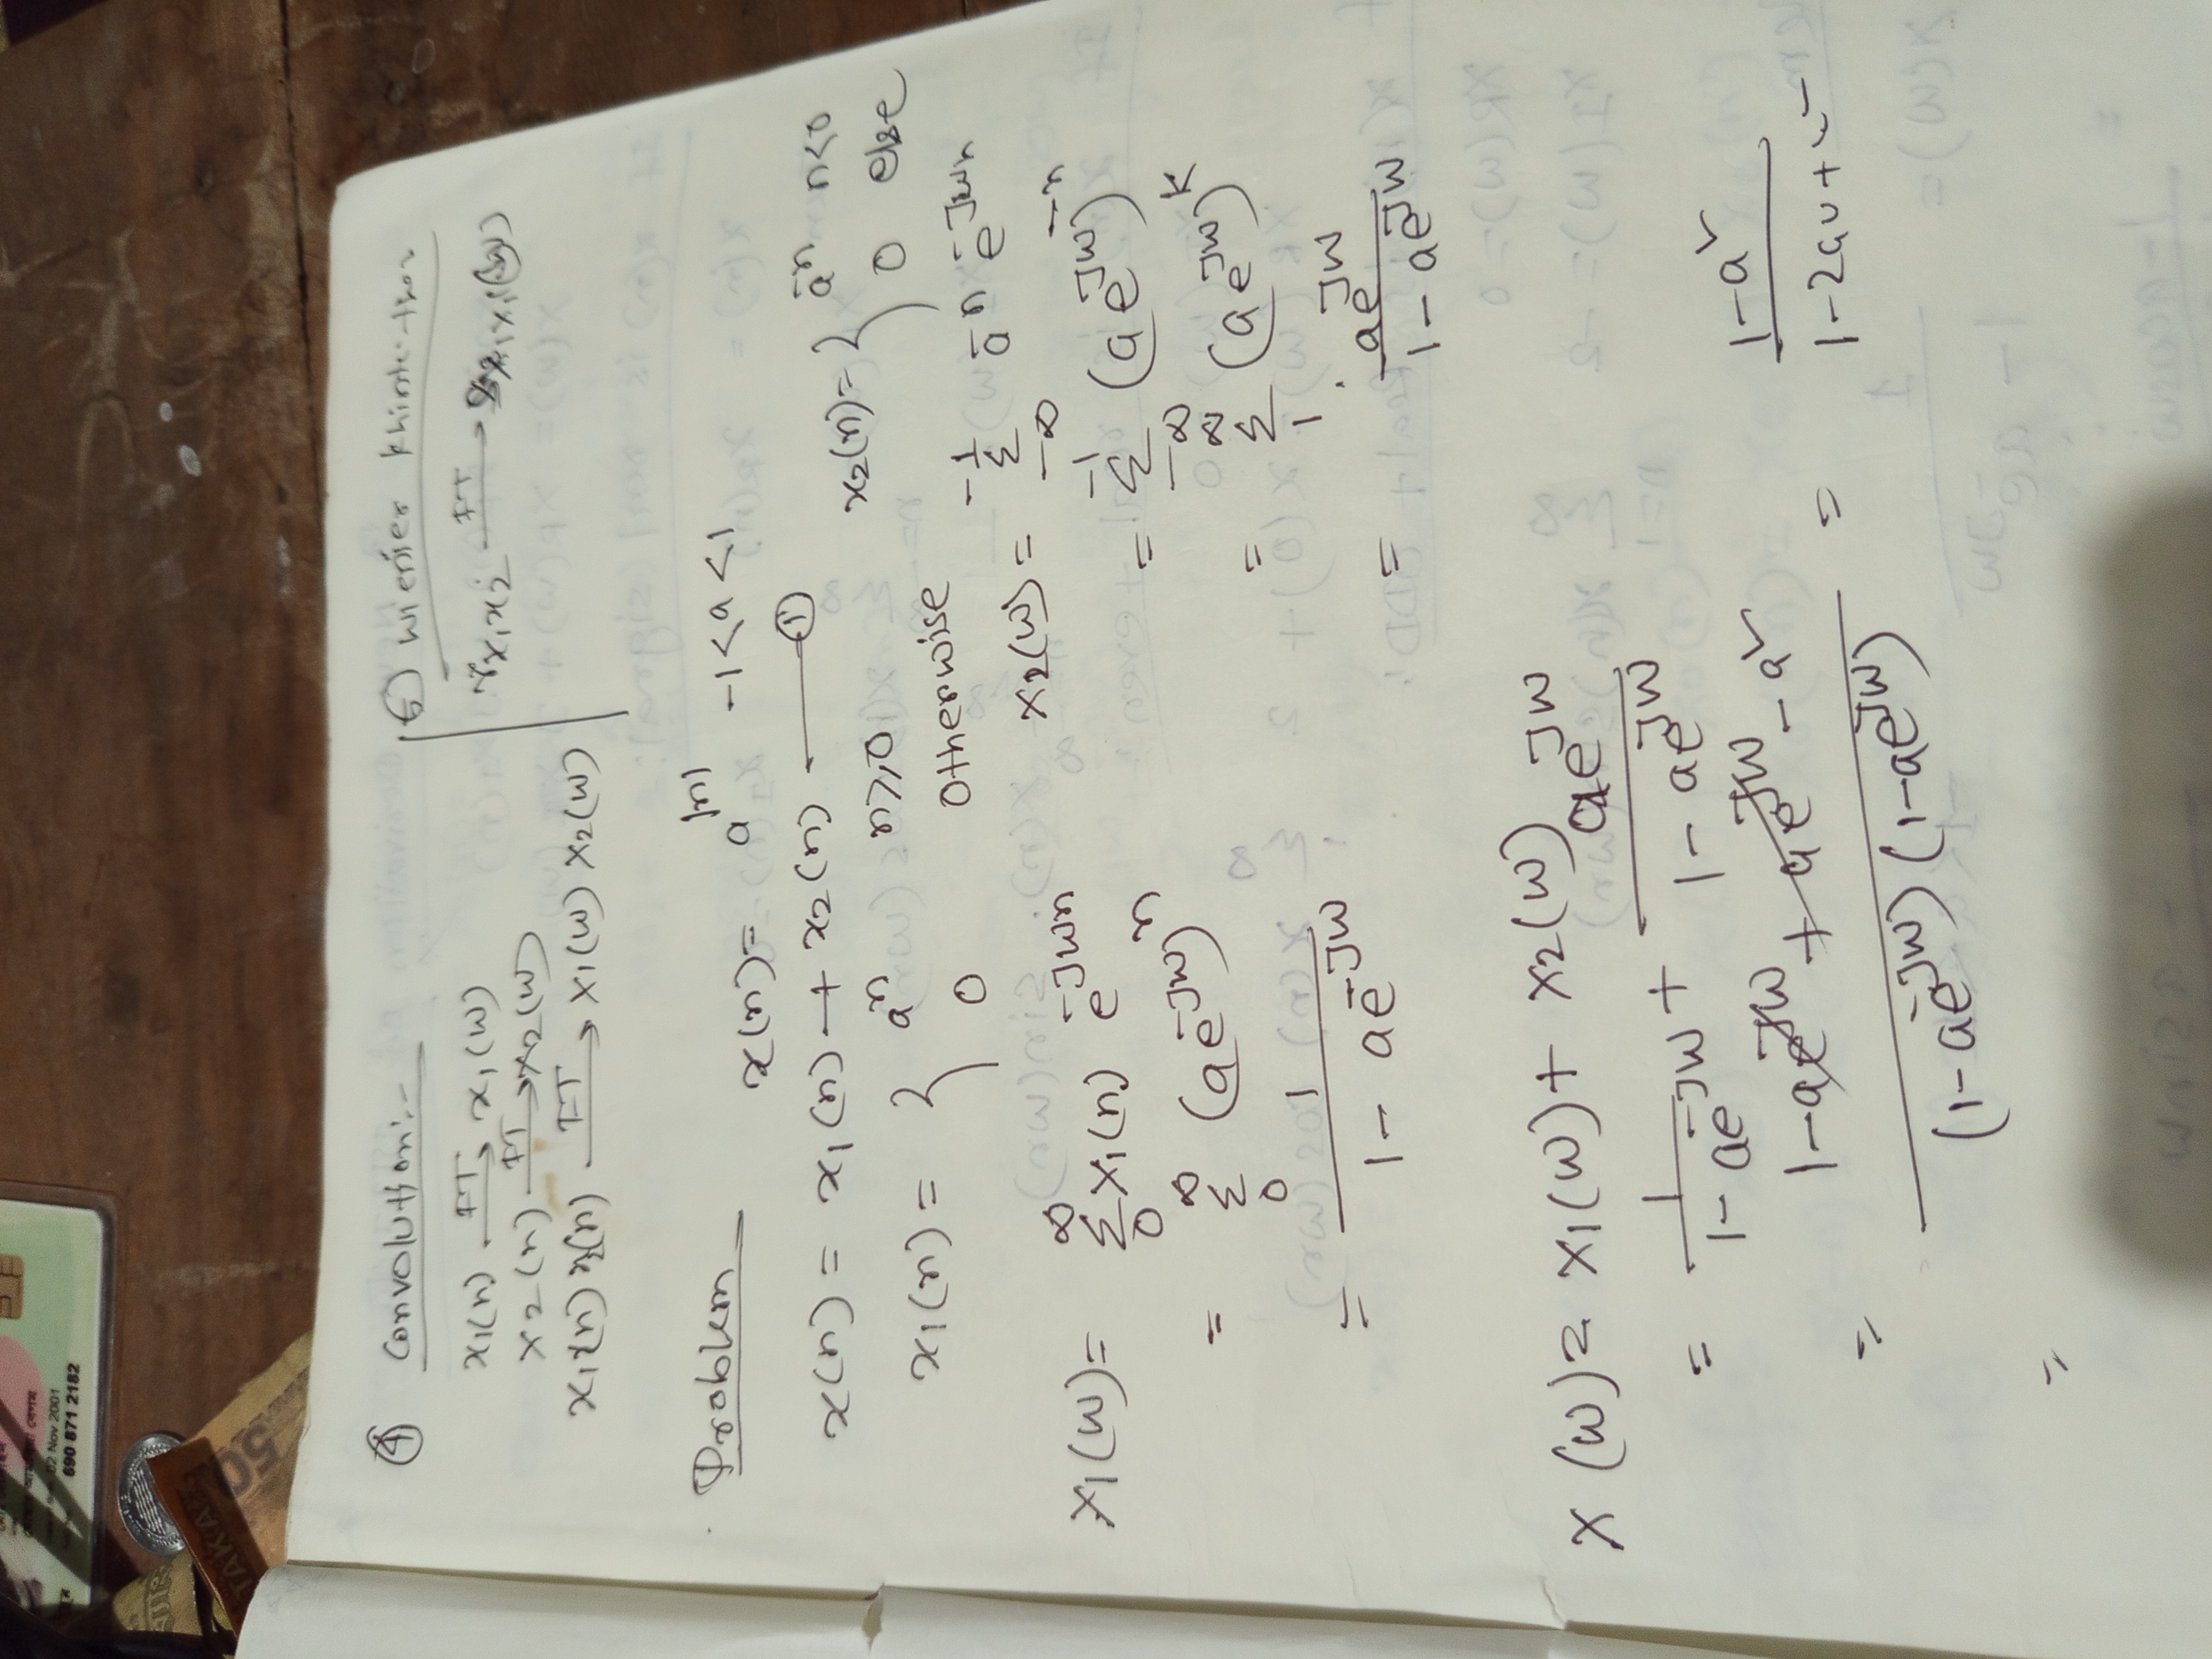 02 Nov 2001
690 871 2182
TAKA
50
④ Convolution:-
x₁(n) —FT→ x₁(w)
x2(n) —FT→ x2(w)
x₁(n) x₂(n) —FT→ x₁(w) x₂(w)
⑤ wienier
r x₁x₂ —FT→
Problem
x(n) = a^|n| -1<a<1
x(n) = x₁(n) + x₂(n) —— ①
x₁(n) = { a^n n≥0
0 otherwise
x₂(n) = { a^-n n<0
0 else
X₁(w) = Σ_0^∞ x₁(n) e^-Jwn
= Σ_0^∞ (ae^-Jw)^n
= 1 / (1 - ae^-Jw)
x₂(w) = Σ_-∞^-1 a^-n e^-Jwn
= Σ_-∞^-1 (ae^Jw)^-n
= Σ_1^∞ (ae^Jw)^k
= ae^Jw / (1 - ae^Jw)
X(w) = x₁(w) + x₂(w)
= 1 / (1 - ae^-Jw) + ae^Jw / (1 - ae^Jw)
= (1 - ae^Jw + ae^Jw - a²) / ((1 - ae^-Jw) (1 - ae^Jw)) = (1 - a²) /
=